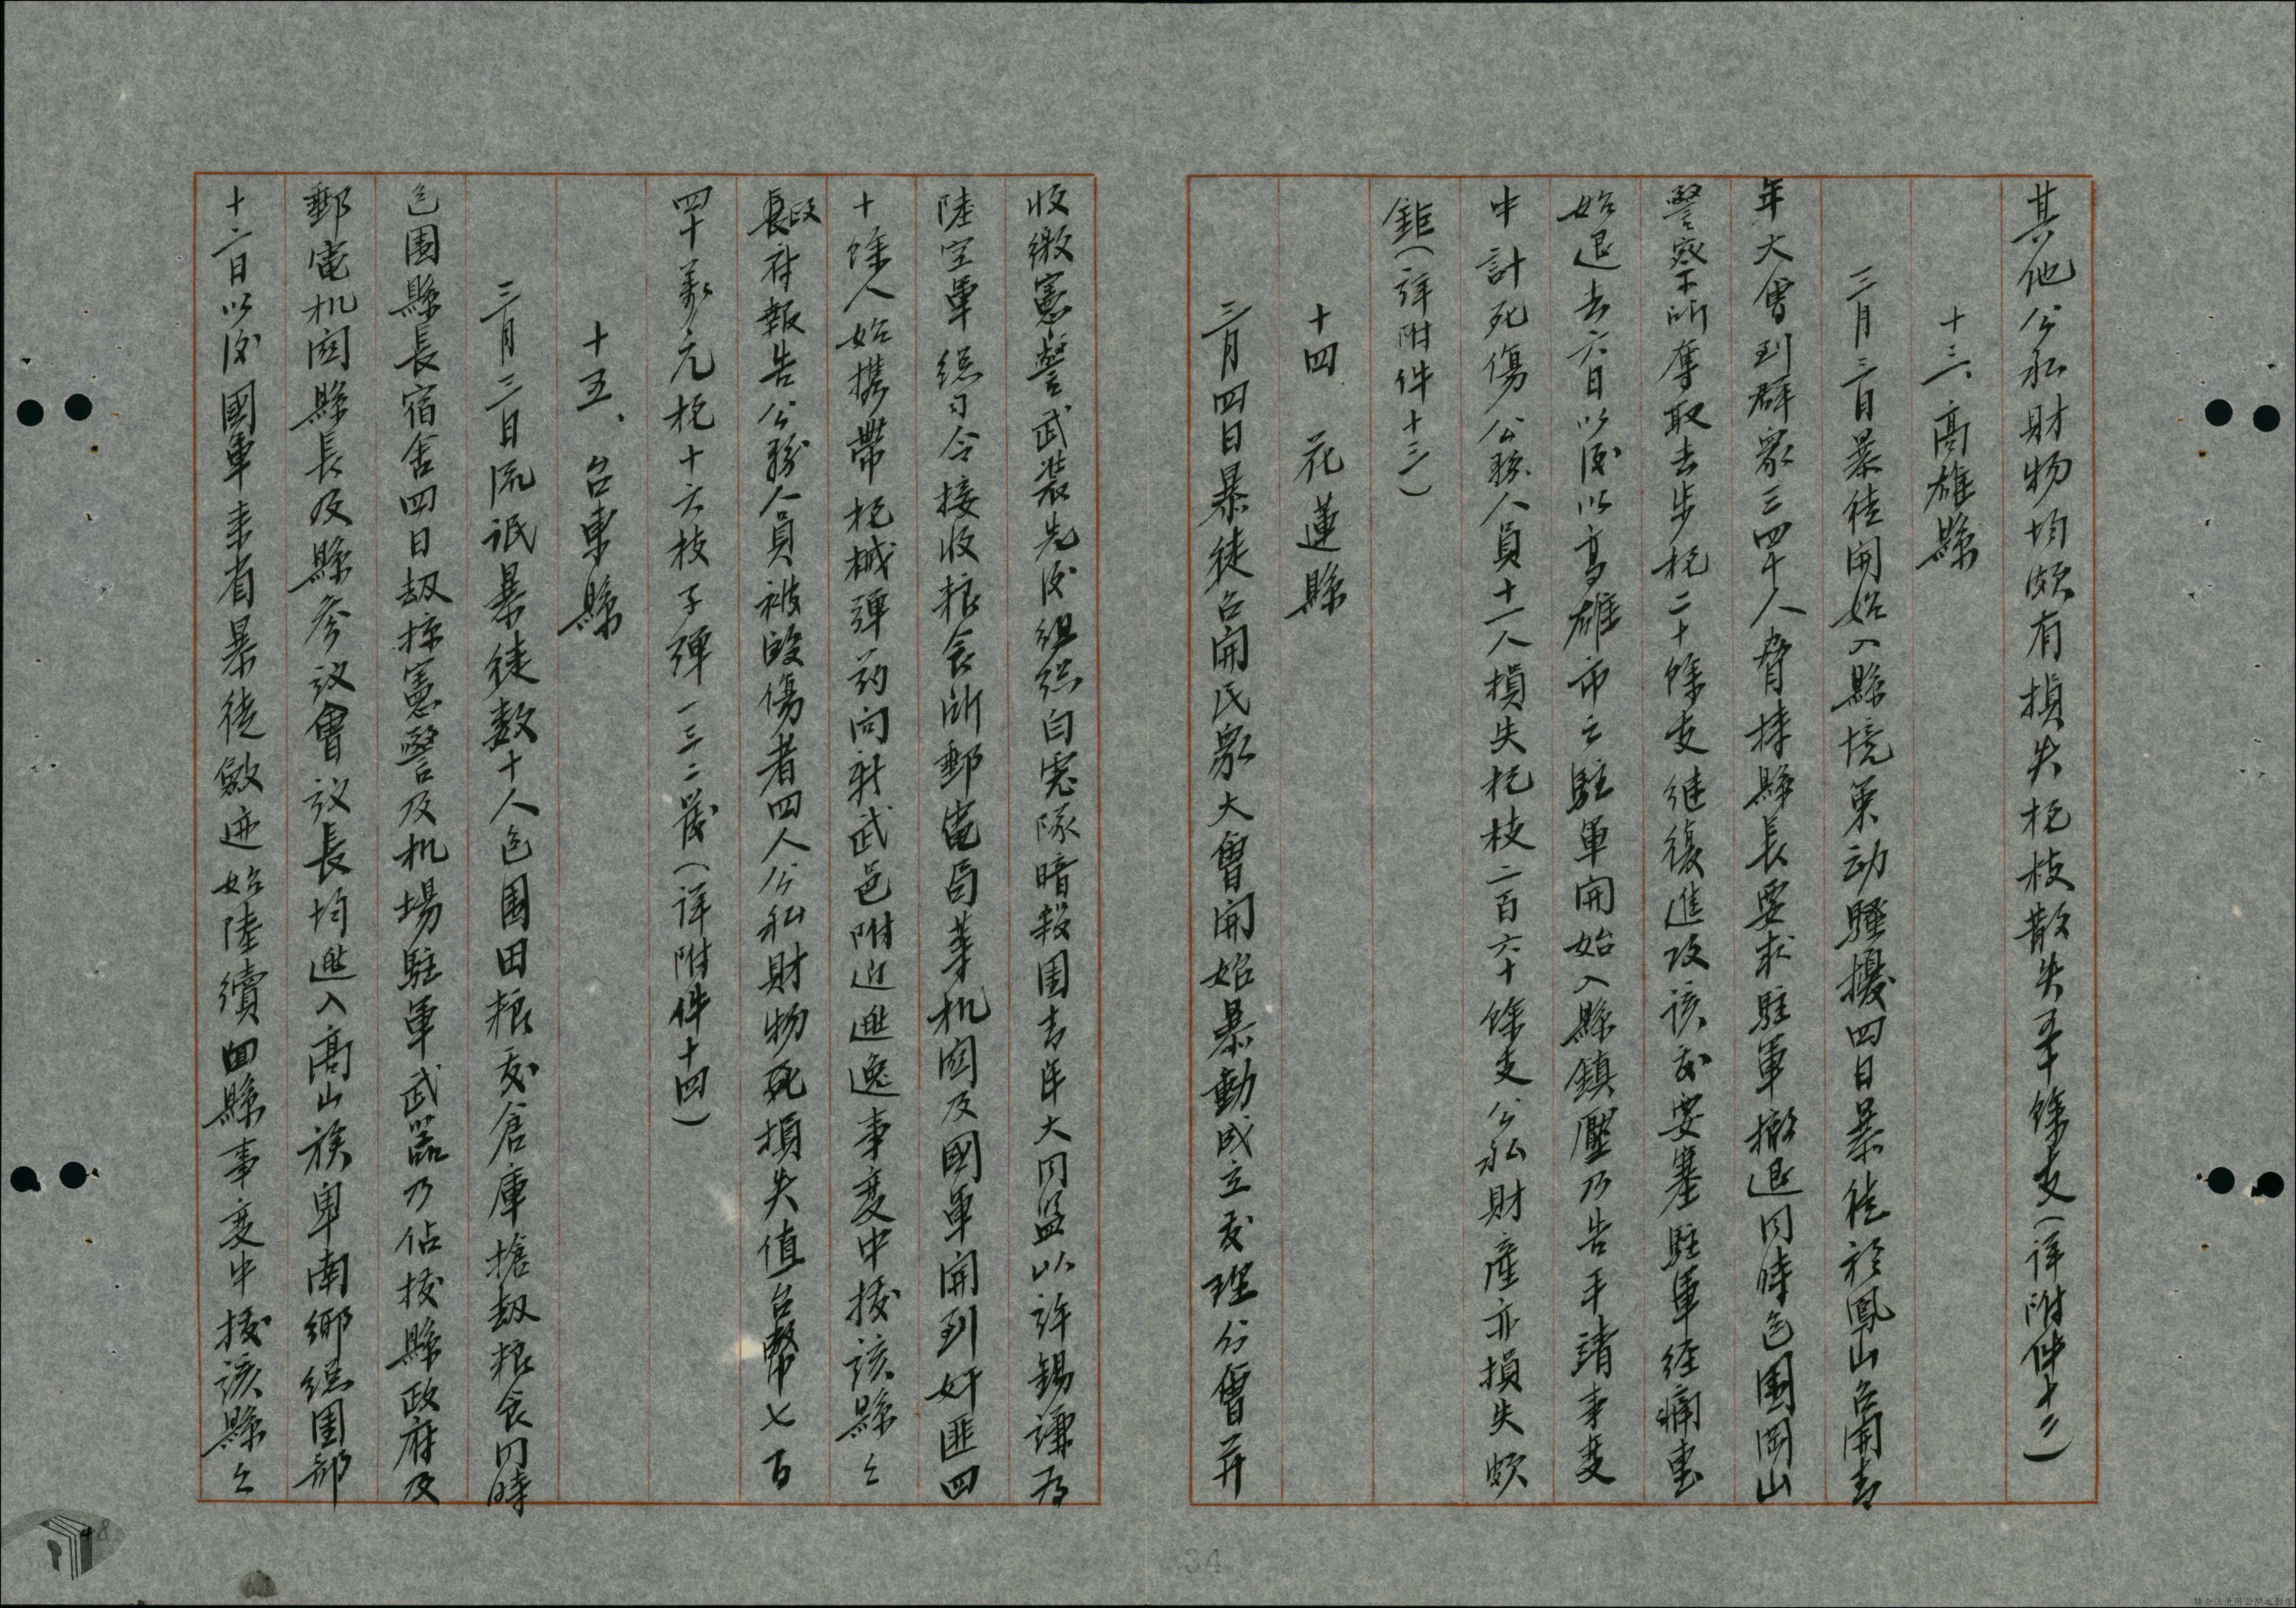 其他公私財物均頗有損失枪枝散失五十餘支(详附件十二)
十三、高雄縣
三月三日暴徒開始入縣境策动騷擾四日暴徒於鳳山召開青
年大會到群眾三四十人脅持縣長要求駐軍撤退同時包圍岡山
警察所奪取去步枪二十餘支继復進攻該处要塞駐軍经痛击
始退去六日以後以高雄市之駐軍開始入縣鎮壓乃告平靖事变
中計死傷公務人員十一人損失枪枝二百六十餘支公私財產亦損失頗
鉅(详附件十三)
十四、花蓮縣
三月四日暴徒召開民眾大會開始暴動成立处理分會并
收缴憲警武装先後組织白宪隊暗殺团青年大同盟以许锡谦为
陸空軍總司令接收粮食所郵電局等机関及國軍開到奸匪四
十餘人始携帶枪械彈药向新武邑附近逃逸事变中授該縣之
長政府報告公務人員被毆傷者四人公私財物死損失值台幣七百
四十萬元枪十六枝子彈一三二發(详附件十四)
十五、台東縣
三月三日流氓暴徒数十人包圍田粮处倉庫搶劫粮食同時
包圍縣長宿舍四日劫掠憲警及机場駐軍武器乃佔拔縣政府及
郵電机関縣長及縣参议會议長均逃入高山族卑南鄉總团部
十二日以後國軍来省暴徒斂迹始陸續回縣事变中授該縣之
34
48